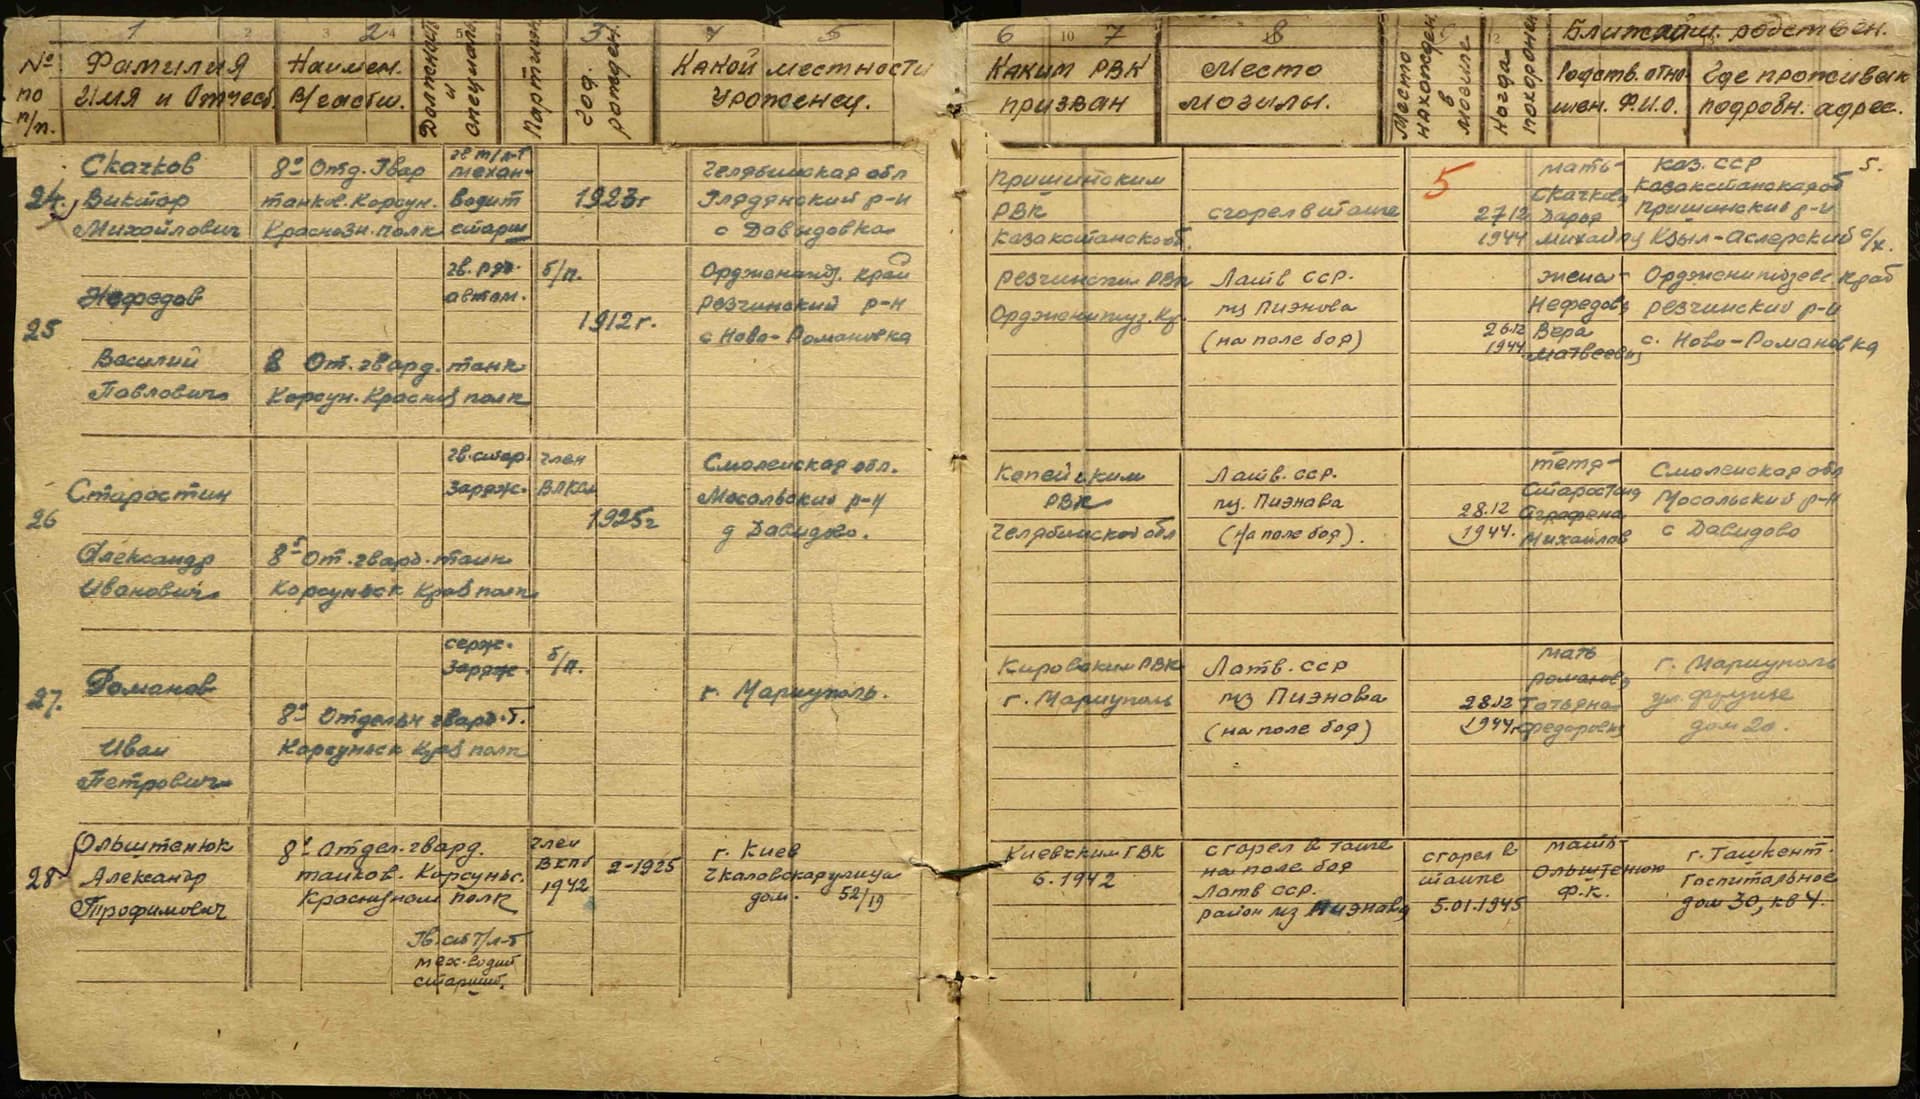 1 2 3 4 5
№ по п/п.
Фамилия Имя и Отчест.
Наимен. В/части.
Должность и специальн.
Партийн.
Год рожден.
Какой местности Уроженец.
6 7 8
Каким РВК призван
Место могилы.
Место нахожден в могиле
Когда похоронен
Ближайш. родствен.
Родств. отношен. Ф.И.О.
Где проживают подробн. адрес.
5 5.
24. Скачков
Виктор
Михайлович
8й Отд. Гвар
танков. Корсун.
Краснозн. полк
гв т/л-т
механ-
водит
старш
1923г
Челябинская обл
Глядянский р-н
с Давыдовка
Пришинским
РВК
Казакстанск об.
сгорел в танке
27 12
1944
мать-
Скачкова
Дарья
Михайлу
Каз. ССР
Казакстанская об
Пришинский р-н
Кзыл-Аслерский с/х.
25
Нефедов
Василий
Павлович
8 От. гвард. танк
Корсун. Красноз полк
гв. ряд.
автом.
б/п.
1912г.
Орджоникидз. край
резчинский р-н
с Ново-Романовка
резчинским РВК
Орджоникидз. Кр.
Латв ССР.
мз Пизнова
(на поле боя)
26 12
1944
жена-
Нефедова
Вера
Матвеевна
Орджоникидзевс край
резчинский р-н
с. Ново-Романовка
26
Старостин
Александр
Иванович
8й От. гвард. танк
Корсуньск Краз полк
гв. стар.
Заряж.
член
ВЛКСМ
1925г
Смоленская обл.
Мосальский р-н
д Давидко.
Копейским
РВК
Челябинской обл
Латв. ССР.
мз. Пизнава
(На поле боя).
28.12
1944.
тетя-
Старостина
Аграфена
Михайлов
Смоленская обл
Мосальский р-н
с Давидово
27.
Романов
Иван
Петрович
8й Отдельн гвард. т.
Корсуньск Краз полк
серж.
Заряж.
б/п.
г. Мариуполь.
Кировским РВК
г. Мариуполь
Латв. ССР
мз Пизнова
(на поле боя)
28 12
1944г.
мать
романова
Татьяна
Федоровн
г. Мариуполь
ул. Фрунзе
дом 20.
28
Ольштенюк
Александр
Трофимович
8й Отдел. гвард.
танков. Корсуньс.
Краснознам полк
Гв. ст т/л-т
мех-водит
старший.
член
ВКПб
1942
2-1925
г. Киев
Чкаловская улица
дом. 52/19
Киевским ГВК
6. 1942
сгорел в танке
на поле боя
Латв ССР.
район мз Пизнава
сгорел в
танке
5.01.1945
мать-
Ольштенюк
Ф.К.
г. Ташкент.
Госпитальное
дом 30, кв 4.